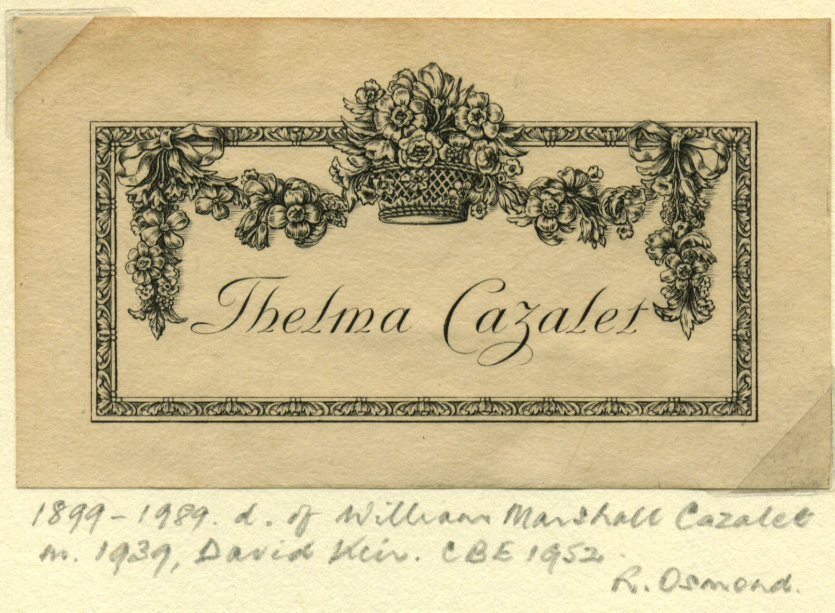 Thelma Cazalet
1899-1989. d. of William Marshall Cazalet
m. 1939, David Keir. CBE 1952.
R. Osmond.